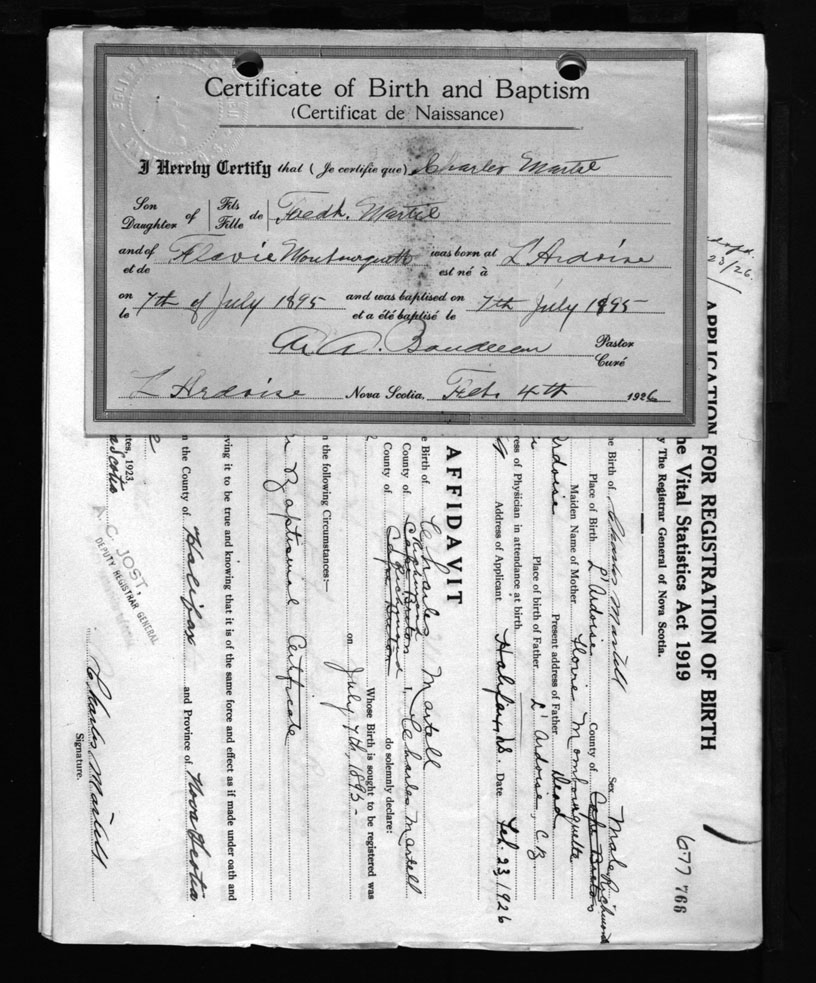 Certificate of Birth and Baptism
(Certificat de Naissance)
I Hereby Certify that (Je certifie que) Charles Martel
Son Daughter of Fils Fille de Fredk. Martel
and of et de Flavie was born at est né à L'Ardoise
on le 7th of July 1895 and was baptised on et a été baptisé le 7th July 1895
A. Boudreau Pastor Curé
L'Ardoise Nova Scotia, Feb. 4th 1926
23/26.
APPLICATION FOR REGISTRATION OF BIRTH
he Vital Statistics Act 1919
y The Registrar General of Nova Scotia.
677 766
ne Birth of Charles Martell Sex Male
Place of Birth L'Ardoise County of Cape Breton Richmond
Maiden Name of Mother Mombourquette
Ardoise Present address of Father Dead
Place of birth of Father L'Ardoise, C.B
ress of Physician in attendance at birth
Address of Applicant Halifax, N.S. Date Feb. 23, 1926
AFFIDAVIT
e Birth of Charles Martell
County of Richmond Cape Breton I, Charles Martell
County of Richmond Cape Breton do solemnly declare:
Whose Birth is sought to be registered was
on July 7th, 1895-
n the following Circumstances:—
Baptismal Certificate
ving it to be true and knowing that it is of the same force and effect as if made under oath and
n the County of Halifax and Province of Nova Scotia
utes, 1923,
a Scotia
A. C. JOST,
DEPUTY REGISTRAR GENERAL
Charles Martell
Signature.